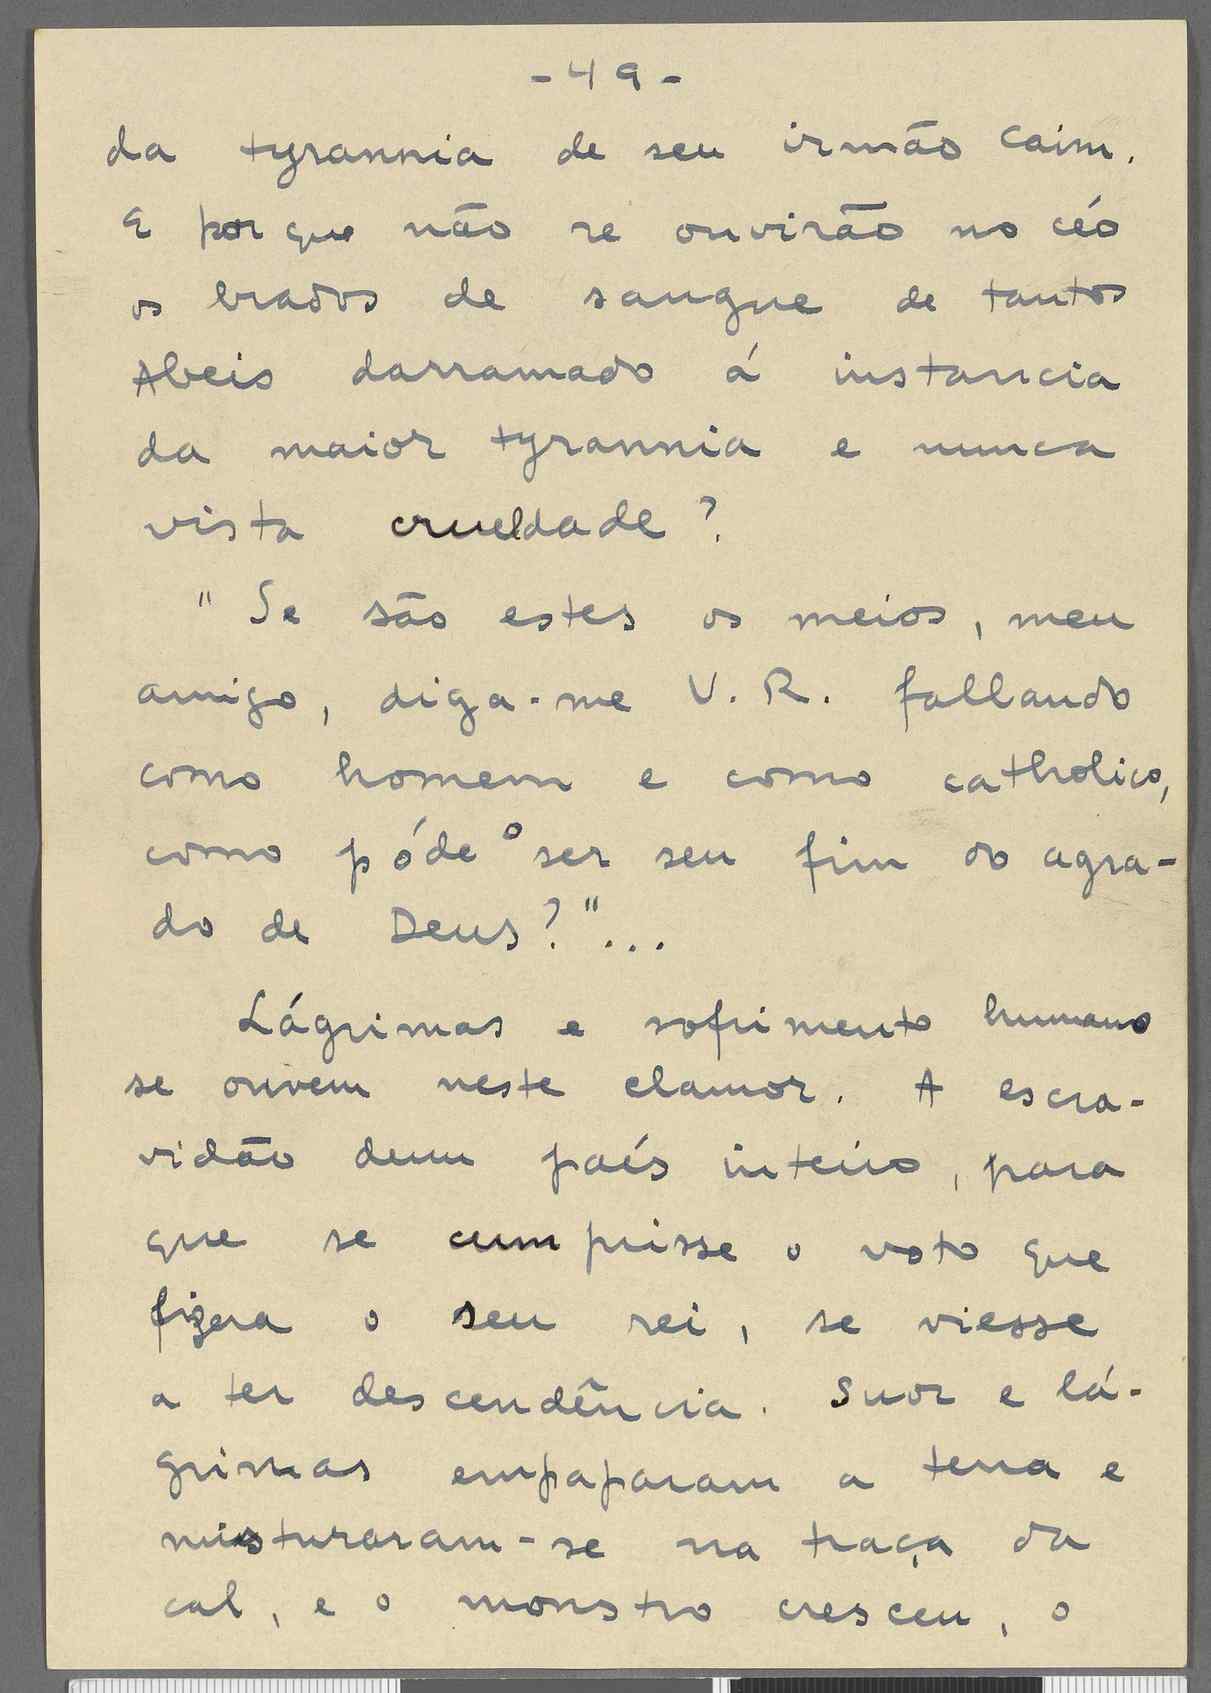 - 49 -
da tyrannia de seu irmão Caim.
E por que não se ouvirão no céo
os brados de sangue de tantos
Abeis darramado á instancia
da maior tyrannia e nunca
vista crueldade?
" Se são estes os meios, meu
amigo, diga-me V. R. fallando
como homem e como catholico,
como póde o ser seu fim do agra-
do de Deus?"...
Lágrimas e sofrimento humano
se ouvem neste clamor. A escra-
vidão dum país inteiro, para
que se cumprisse o voto que
fizera o seu rei, se viesse
a ter descendência. Suor e lá-
grimas empaparam a terra e
misturaram-se na traça da
cal, e o monstro cresceu, o